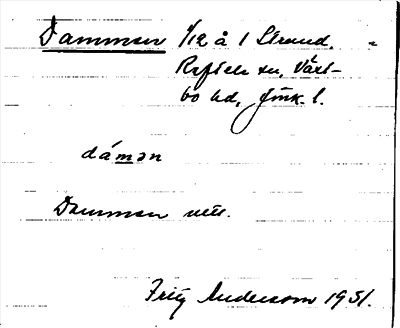 Dammen 1/12 å 1 Strand.
Reftele sn, Väst-
bo hd, Jönk. l.
dámən
Dammen
Fritz Anderson 1951.